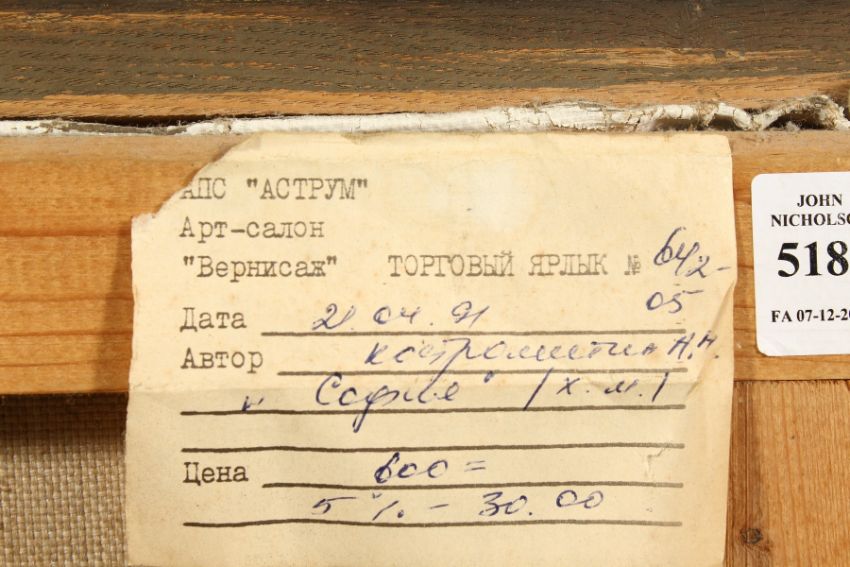 АПС "АСТРУМ"
Арт-салон
"Вернисаж" ТОРГОВЫЙ ЯРЛЫК № 642-
05
Дата 21.04.91
Автор Костромитин Н.Н.
"София" (х.м.)
Цена 600=
5% - 30.00
JOHN
NICHOLSO
518
FA 07-12-20